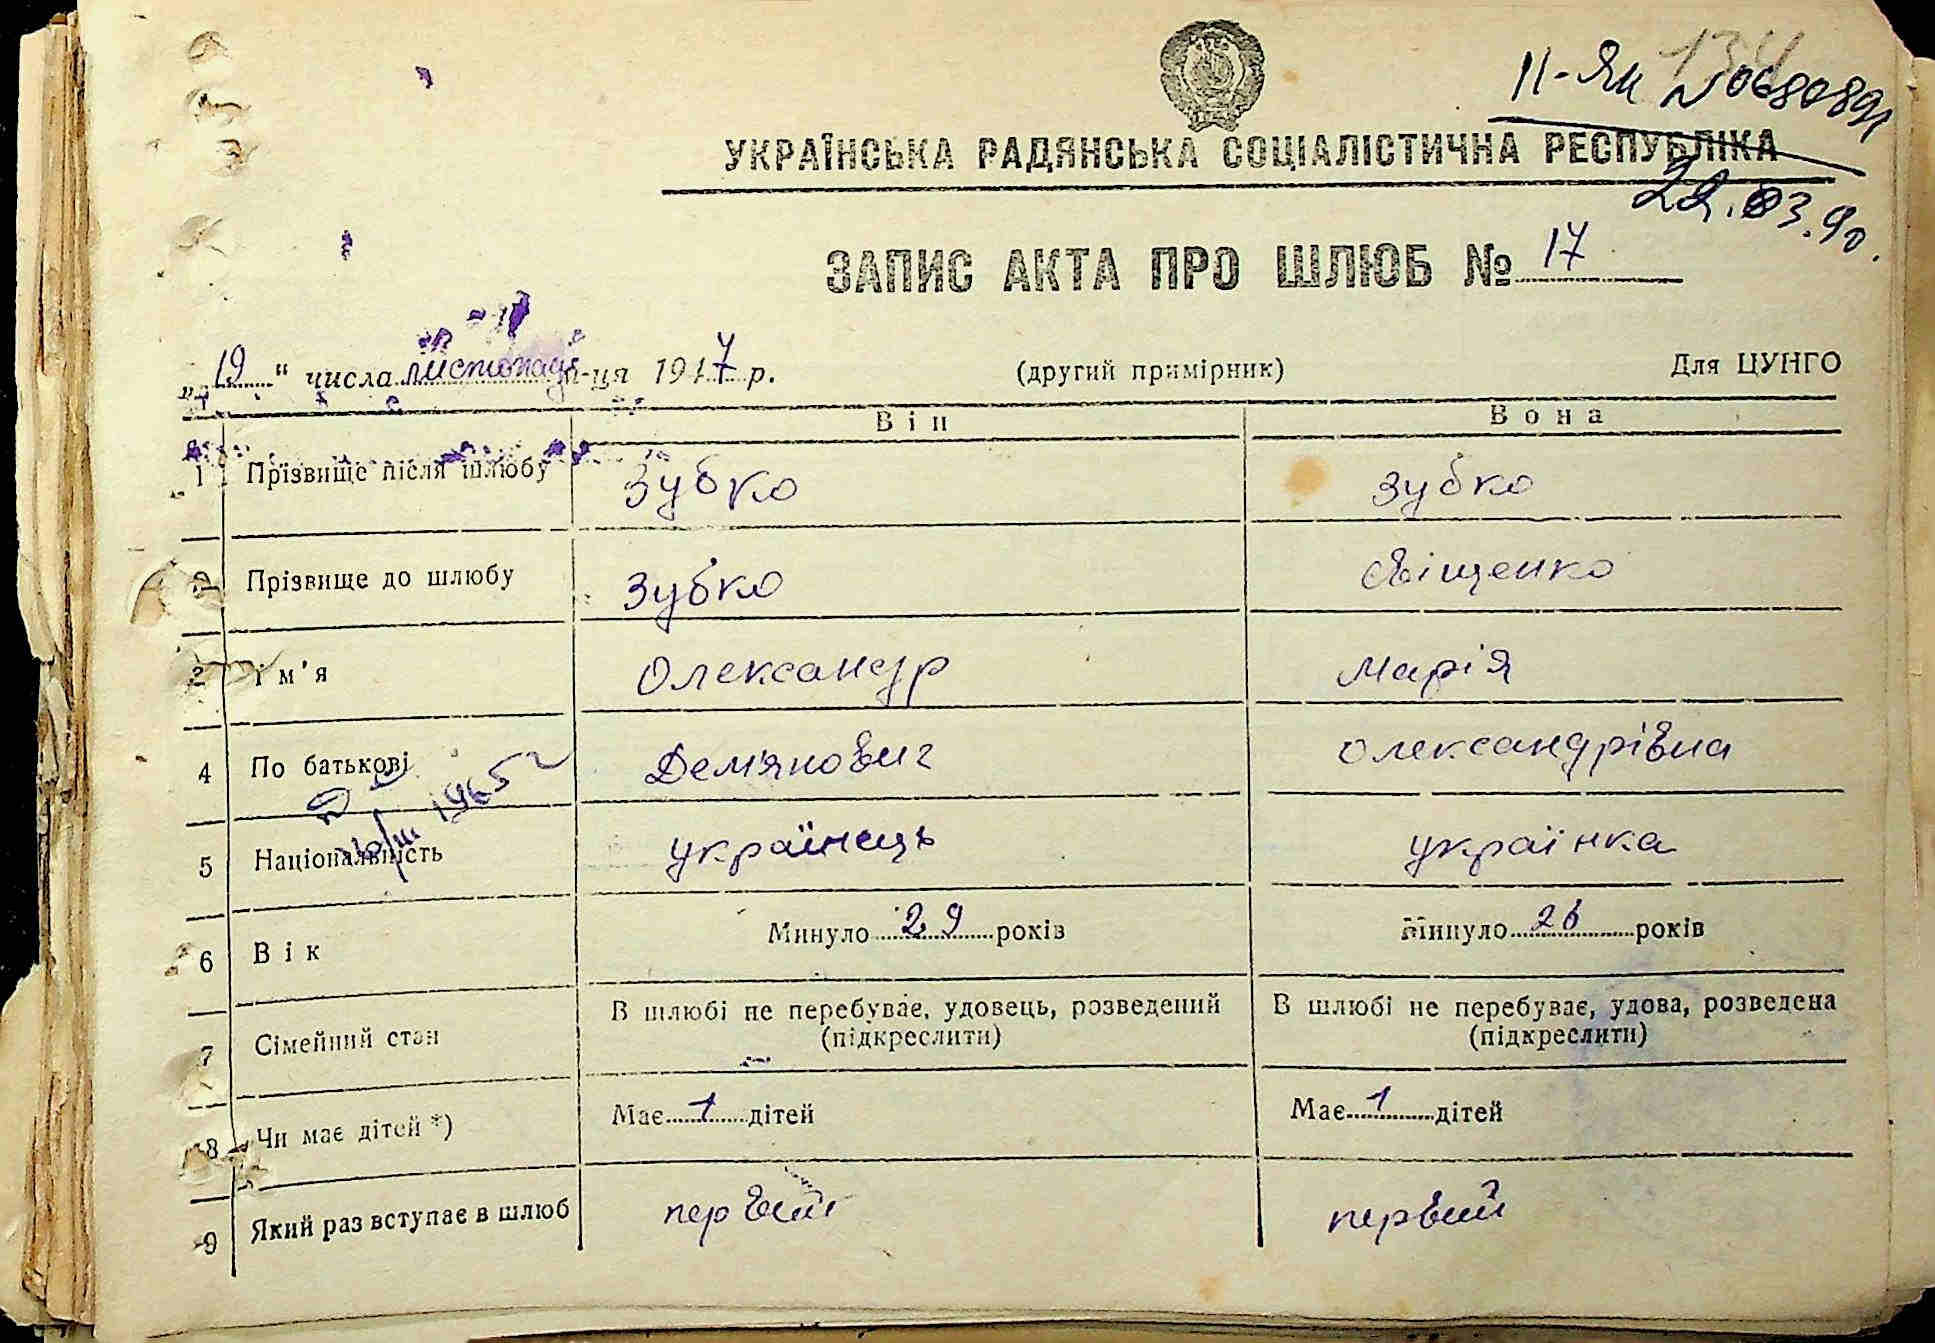 134
II-ЯИ №068089
УКРАЇНСЬКА РАДЯНСЬКА СОЦІАЛІСТИЧНА РЕСПУБЛІКА
22.03.90.
ЗАПИС АКТА ПРО ШЛЮБ № 17
„19“ числа листопада м-ця 1947 р. (другий примірник) Для ЦУНГО
Він Вона
1 Прізвище після шлюбу Зубко Зубко
2 Прізвище до шлюбу Зубко Яіщенко
3 Ім'я Олександр Марія
4 По батькові Дем'янович Олександрівна
1965
5 Національність українець українка
6 Вік Минуло 29 років Минуло 26 років
7 Сімейний стан В шлюбі не перебуває, удовець, розведений (підкреслити) В шлюбі не перебуває, удова, розведена (підкреслити)
8 Чи має дітей *) Має 1 дітей Має 1 дітей
9 Який раз вступає в шлюб первий первий